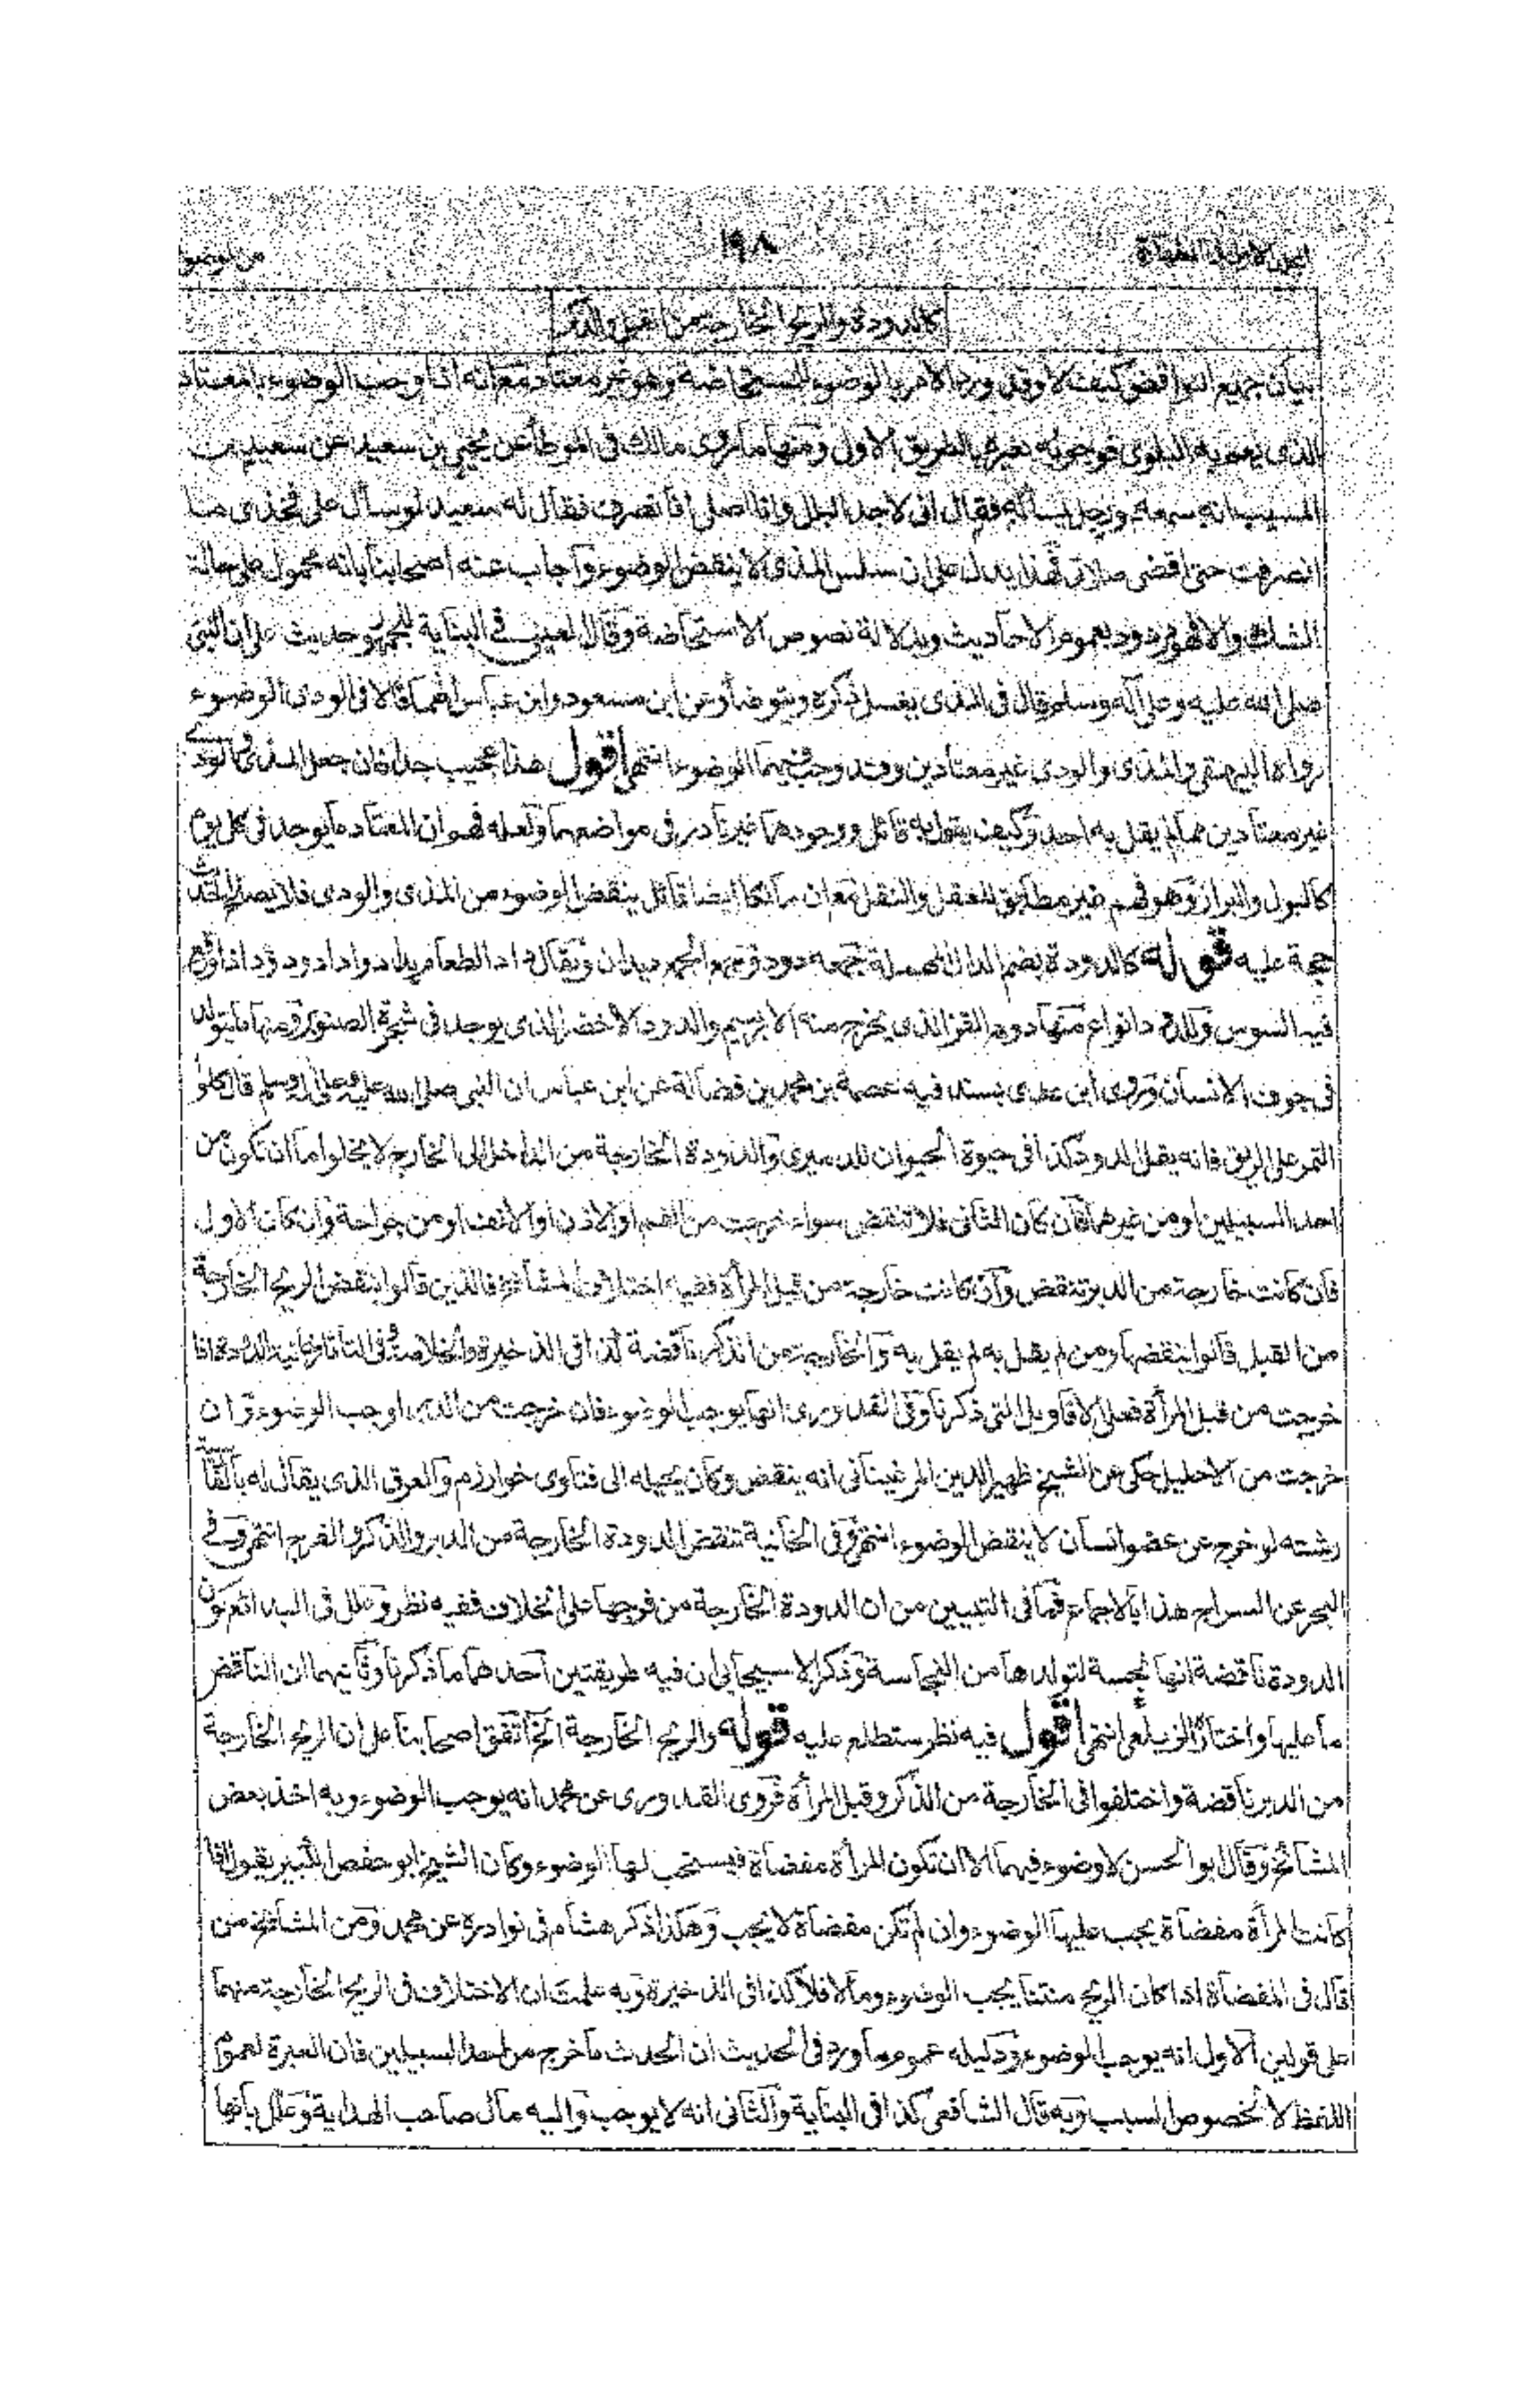 ١٩٨
كالدودة والريح الخارجة من القبل والذكر
بيان جميع النواقض كيف لا وقد ورد الامر بالوضوء للمستحاضة وهو غير معتاد مع انه اذا وجب الوضوء بالمعتاد
الذى يعم به البلوى فوجوبه بغيره بالطريق الاول ومنها ما روى مالك فى الموطأ عن يحيى بن سعيد عن سعيد بن
المسيب انه سمعه ورجل يسأله فقال انى لاجد البلل وانا اصلى افانصرف فقال له سعيد لو سال على فخذى ما
انصرفت حتى اقضى صلاتى فهذا يدل على ان سلس المذى لا ينقض الوضوء وآجاب عنه اصحابنا بانه محمول على حالة
الشك والا فهو مردود بعموم الاحاديث وبدلالة نصوص الاستحاضة وقال العينى فى البناية للجمهور حديث على ان النبى
صلى الله عليه وعلى آله وسلم قال فى المذى يغسل ذكره ويتوضأ وعن ابن مسعود وابن عباس انهما قالا فى الودى الوضوء
رواه البيهقى والمذى والودى غير معتادين وقد وجب فيهما الوضوء انتهى اقول هذا عجيب جدا فان جعل المذى والودى
غير معتادين مما لم يقل به احد وكيف يقول به قائل ووجودهما غير نادر فى مواضعهما ولعله فهم ان المعتاد ما يوجد فى كل يوم
كالبول والبراز وهو فهم غير مطابق للعقل والنقل مع ان مالكا ايضا قائل بنقض الوضوء من المذى والودى فلا يصلح الحديث
حجة عليه قوله كالدودة بضم الدال المهملة جمعه دود وجمع الجمع ديدان ويقال داد الطعام يداد وادادود ود اذا وقع
فيه السوس وللدود انواع منها دود القز الذى يخرج منه الابريسم والدود الاخضر الذى يوجد فى شجرة الصنوبر ومنها ما يتولد
فى جوف الانسان وروى ابن عدى بسند فيه عصمة بن محمد بن فضالة عن ابن عباس ان النبى صلى الله عليه وعلى آله وسلم قال كلوا
التمر على الريق فانه يقتل الدود كذا فى حيوة الحيوان للدميرى والدودة الخارجة من الداخل الى الخارج لا يخلوا ما ان تكون من
احد السبيلين او من غيرهما فان كان الثانى فلا تنقض سواء خرجت من الفم او الاذن او الانف او من جراحة وان كان الاول
فان كانت خارجة من الدبر تنقض وان كانت خارجة من قبل المرأة ففيه اختلاف المشائخ فالذين قالوا بنقض الريح الخارجة
من القبل قالوا بنقضها ومن لم يقل به لم يقل به والخارجة من الذكر ناقضة كذا فى الذخيرة والخلاصة وفى التاتارخانية الدودة اذا
خرجت من قبل المرأة فعلى الاقاويل التى ذكرنا وفى القدورى انها يوجب الوضوء فان خرجت من الدبر اوجب الوضوء وان
خرجت من الاحليل حكى عن الشيخ ظهير الدين المرغينانى انه ينقض وكان يحيله الى فتاوى خوارزم والعرق الذى يقال له بالفارسية
رشته لو خرج عن عضو انسان لا ينقض الوضوء انتهى وفى الخانية تنقض الدودة الخارجة من الدبر والذكر والفرج انتهى وفى
البحر عن السراج هذا بالاجماع فما فى التبيين من ان الدودة الخارجة من فرجها على الخلاف ففيه نظر وعلل فى البدائع بكون
الدودة ناقضة انها نجسة لتولدها من النجاسة وذكر الاسبيجابى ان فيه طريقتين احدهما ما ذكرنا وثانيهما ان الناقض
ما عليها واختاره الزيلعى انتهى اقول فيه نظر ستطلع عليه قوله والريح الخارجة الخ اتفق اصحابنا على ان الريح الخارجة
من الدبر ناقضة واختلفوا فى الخارجة من الذكر وقبل المرأة فروى القدورى عن محمد انه يوجب الوضوء وبه اخذ بعض
المشائخ وقال ابو الحسن لا وضوء فيهما الا ان تكون المرأة مفضاة فيستحب لها الوضوء وكان الشيخ ابو حفص الكبير يقول اذا
كانت المرأة مفضاة يجب عليها الوضوء وان لم تكن مفضاة لا يجب وهكذا ذكر هشام فى نوادره عن محمد ومن المشائخ من
قال فى المفضاة اذا كان الريح منتنا يجب الوضوء وما لا فلا كذا فى الذخيرة وبه علمت ان الاختلاف فى الريح الخارجة منهما
على قولين الاول انه يوجب الوضوء ودليله عموم ما ورد فى الحديث ان الحدث ما خرج من احد السبيلين فان العبرة لعموم
اللفظ لا لخصوص السبب وبه قال الشافعى كذا فى البناية والثانى انه لا يوجب واليه مال صاحب الهداية وعلل بانها